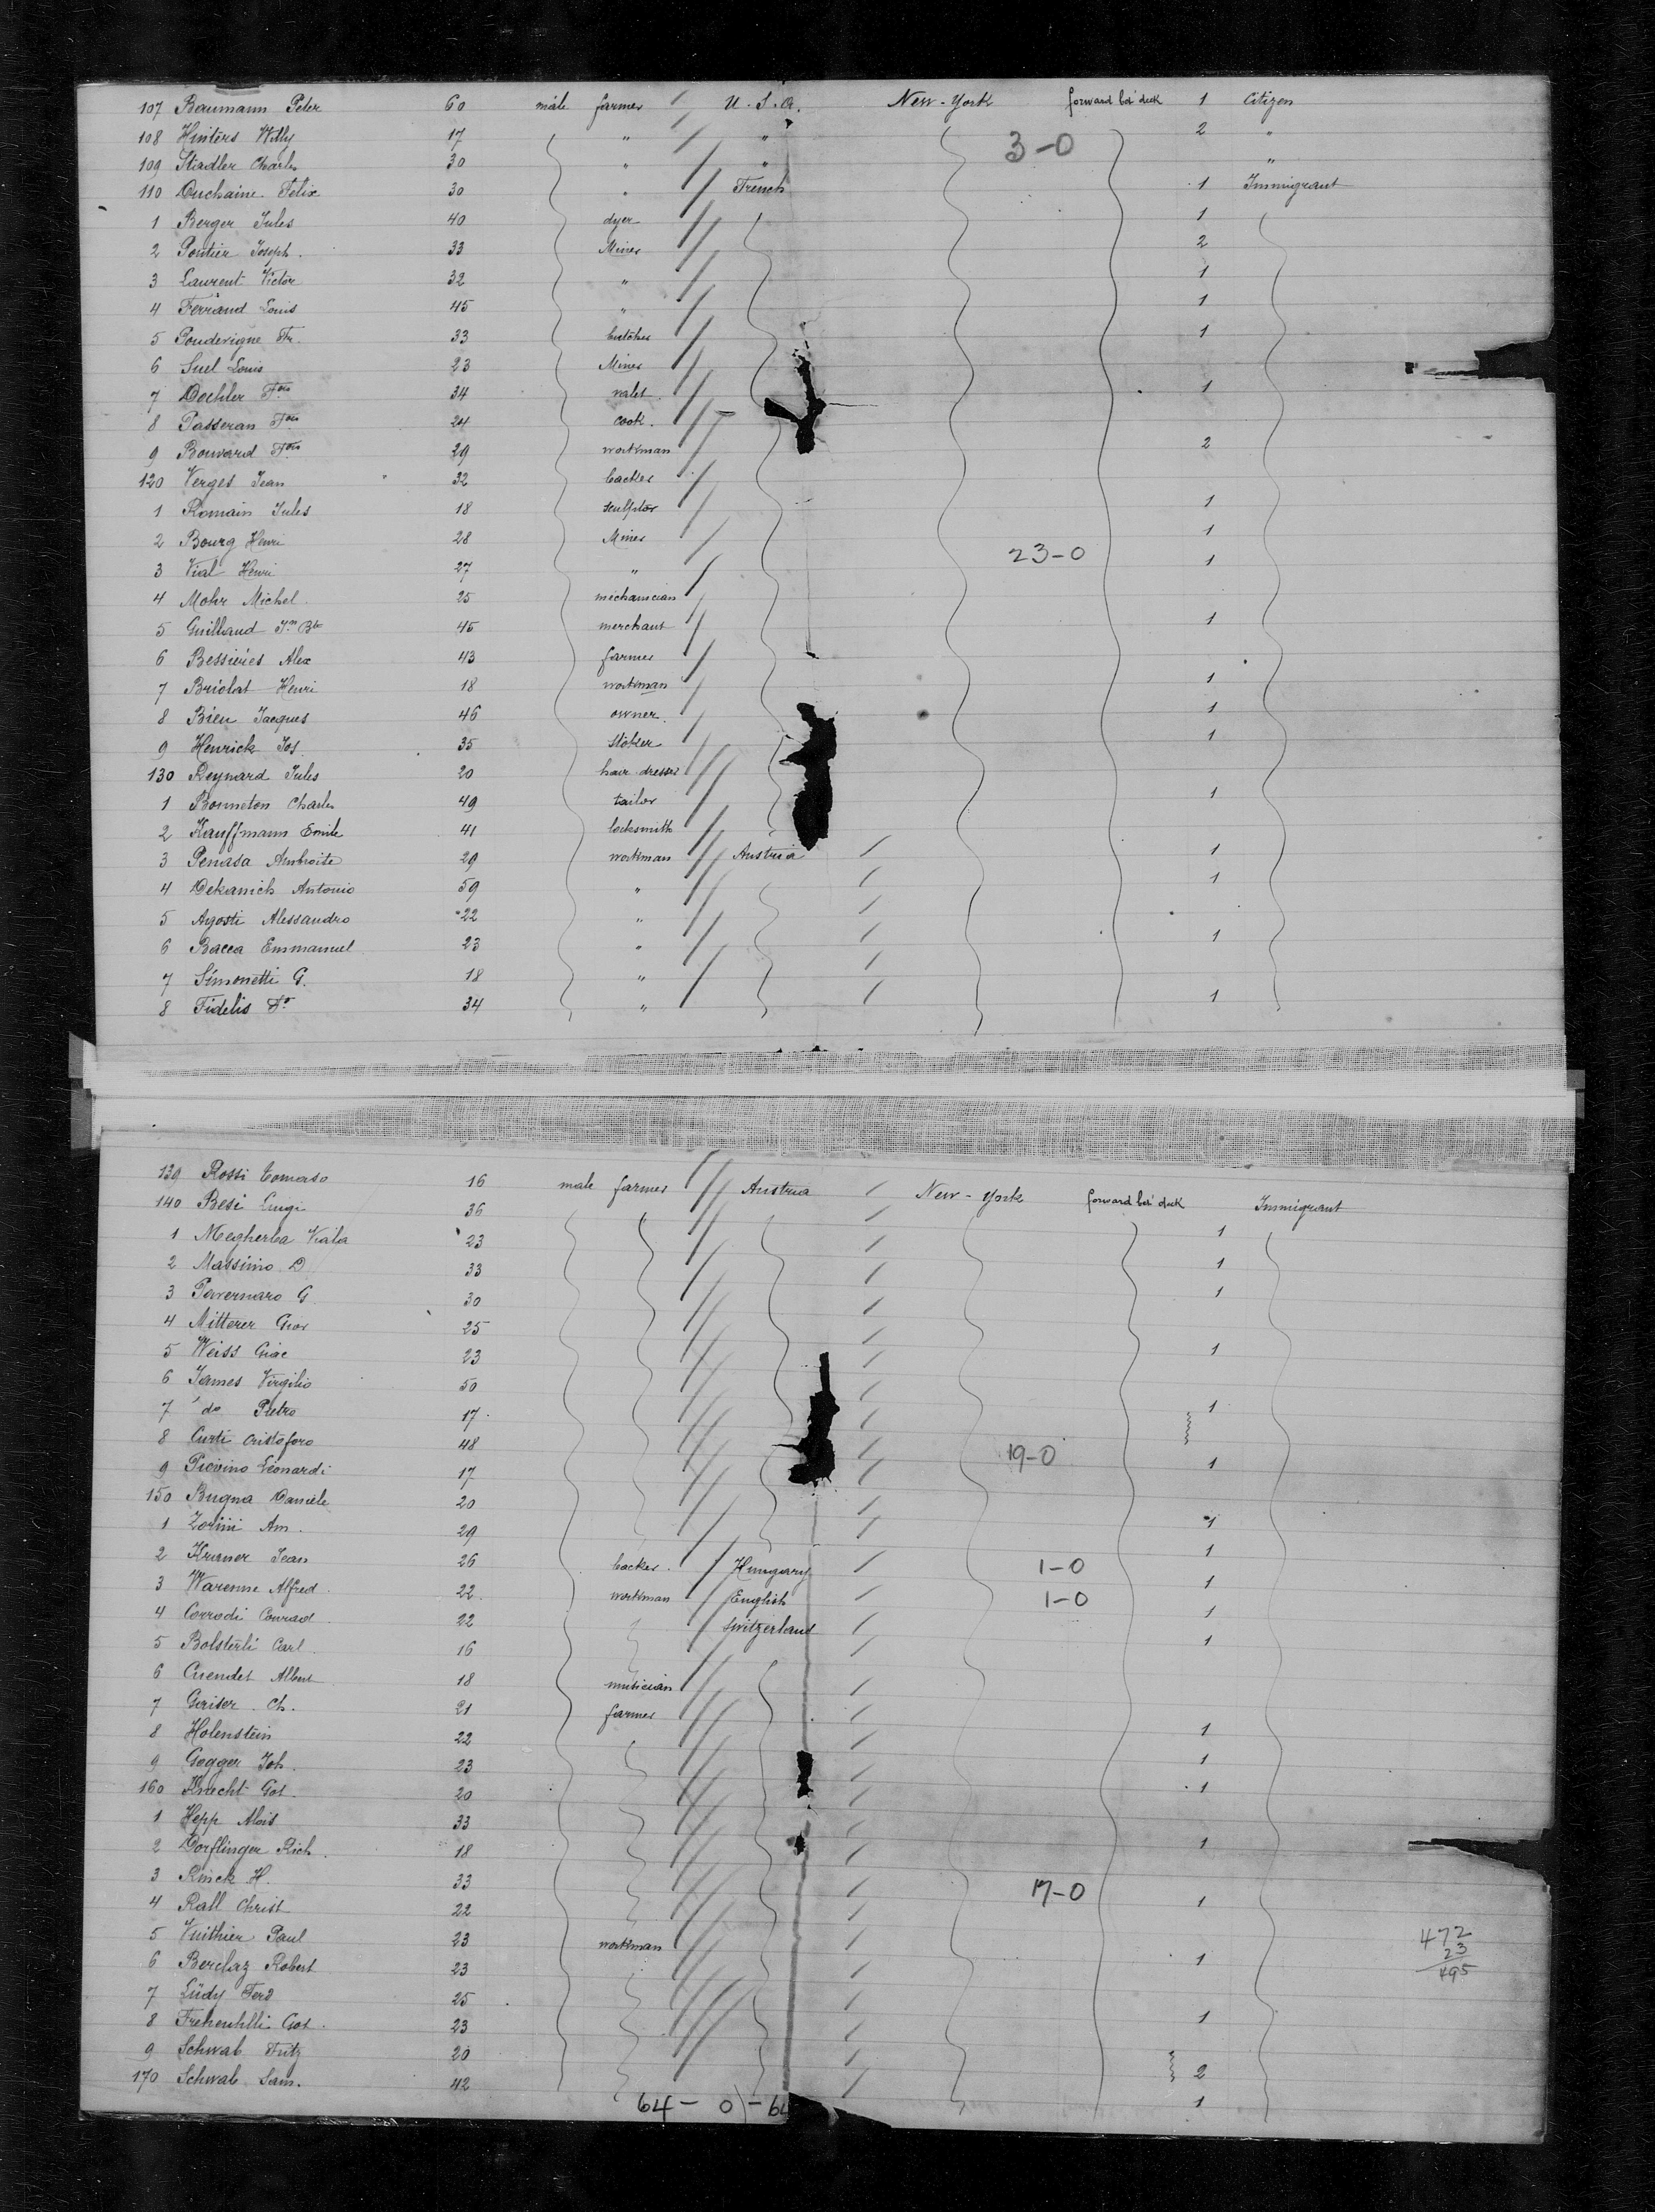 107 Baumann Peter 60 male farmer U.S.A. New-York forward bet' deck 1 Citizen
108 Hinters Willy 17 " " 2 "
3-0
109 Stadler Charles 30 " " "
110 Duchaine Felix 30 " French 1 Immigrant
1 Berger Jules 40 dyer 1
2 Pontier Joseph. 33 Miner 2
3 Laurent Victor 32 " 1
4 Ferrand Louis 45 " 1
5 Pouderigne Fr. 33 butcher 1
6 Suel Louis 23 Miner
7 Dochler Fois 34 valet 1
8 Passeran Fois 24 cook.
9 Bouvard Fois 29 workman 2
120 Verges Jean 32 backer
1 Romain Jules 18 sculptor 1
2 Bourg Henri 28 Miner 1
23-0
3 Vial Henri 27 " 1
4 Mohr Michel 25 mechanician
5 Guilland Jn Bte 45 merchant 1
6 Bessières Alex 43 farmer
7 Briolat Henri 18 workman 1
8 Bieu Jacques 46 owner 1
9 Henrick Jos. 35 stoker 1
130 Reynard Jules 20 hair dresser
1 Bonneton Charles 49 tailor 1
2 Kauffmann Emile 41 locksmith
3 Penasa Ambroise 29 workman Austria 1
4 Dekanich Antonio 59 " 1
5 Agosti Alessandro 22 "
6 Bacca Emmanuel 23 " 1
7 Simonetti G. 18 "
8 Fidelis Fo 34 " 1
139 Rossi Tomaso 16 male farmer Austria New-York forward bet' deck Immigrant
140 Besi Luigi 36
1 Megherba Viala 23 1
2 Massimo D 33 1
3 Tavernaro G 30 1
4 Mitterer Giov 25
5 Weiss Giac 23 1
6 James Virgilio 50
7 do Pietro 17 1
8 Curti Cristoforo 48
19-0
9 Piovino Leonardi 17 1
150 Bugna Daniele 20
1 Zorini Am. 29 1
2 Kruner Jean 26 backer Hungary 1-0 1
3 Warenne Alfred 22 workman English 1-0 1
4 Corrodi Conrad 22 Switzerland 1
5 Bolsterli Carl 16 1
6 Cuendet Albert 18 musician
7 Geiser Ch. 21 farmer
8 Holenstein 22 1
9 Gegger Joh. 23 1
160 Knecht Got. 20 1
1 Hepp Alois 33
2 Dorflinger Rich. 18 1
3 Rinck H. 33
17-0
4 Rall Christ 22 1
5 Vuithier Paul 23 workman
472
23
495
6 Berclaz Robert 23 1
7 Lüdy Ferd 25
8 Got. 23 1
9 Schwab Fritz 20
170 Schwab Sam. 42 2
1
64 - 0) - 64